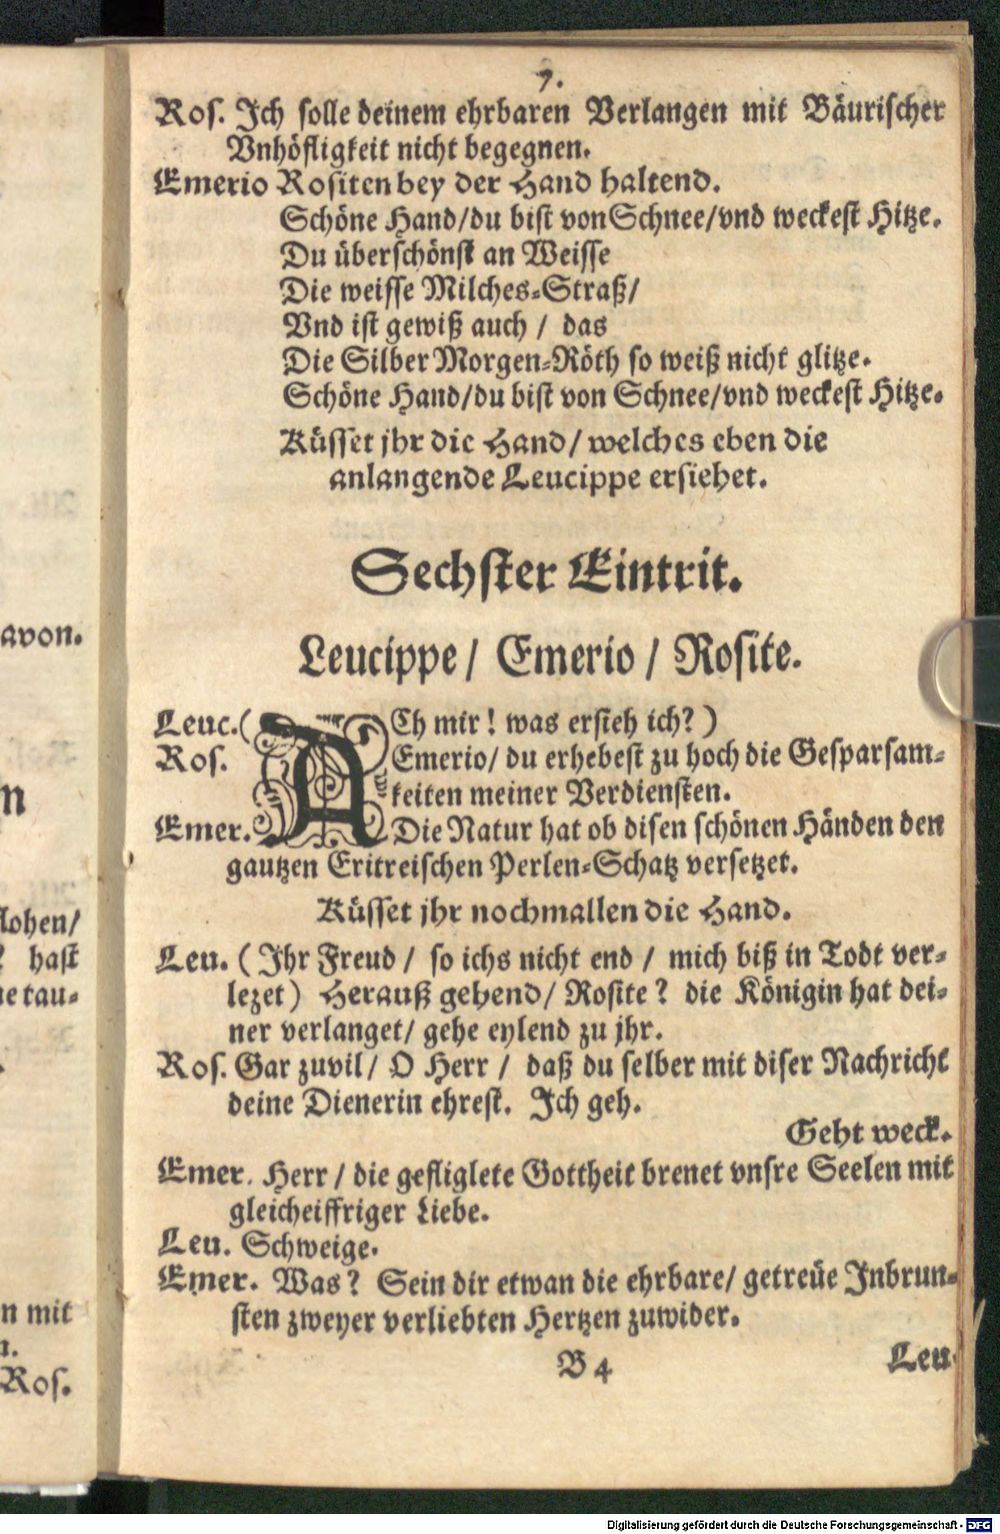 7.
Ros. Ich solle deinem ehrbaren Verlangen mit Bäurischer
Vnhöfligkeit nicht begegnen.
Emerio Rositen bey der Hand haltend.
Schöne Hand/du bist von Schnee/vnd weckest Hitze.
Du überschönst an Weisse
Die weisse Milches-Straß/
Vnd ist gewiß auch / das
Die Silber Morgen-Röth so weiß nicht glitze.
Schöne Hand/du bist von Schnee/vnd weckest Hitze.
Küsset jhr die Hand/ welches eben die
anlangende Leucippe ersiehet.
Sechster Eintrit.
Leucippe / Emerio / Rosite.
Leuc. (ACh mir! was ersieh ich?)
Ros. Emerio/ du erhebest zu hoch die Gesparsam-
keiten meiner Verdiensten.
Emer. Die Natur hat ob disen schönen Händen den
gautzen Eritreischen Perlen-Schatz versetzet.
Küsset jhr nochmallen die Hand.
Leu. (Ihr Freud / so ichs nicht end / mich biß in Todt ver-
lezet) Herauß gehend/ Rosite? die Königin hat dei-
ner verlanget/ gehe eylend zu jhr.
Ros. Gar zuvil/ O Herr / daß du selber mit diser Nachricht
deine Dienerin ehrest. Ich geh.
Geht weck.
Emer. Herr / die gefliglete Gottheit brenet vnsre Seelen mit
gleicheiffriger Liebe.
Leu. Schweige.
Emer. Was? Sein dir etwan die ehrbare/ getreüe Inbrun-
sten zweyer verliebten Hertzen zuwider.
B 4
Leu.
avon.
n
lohen/
? hast
ne tau-
n mit
n.
Ros.
Digitalisierung gefördert durch die Deutsche Forschungsgemeinschaft - DFG